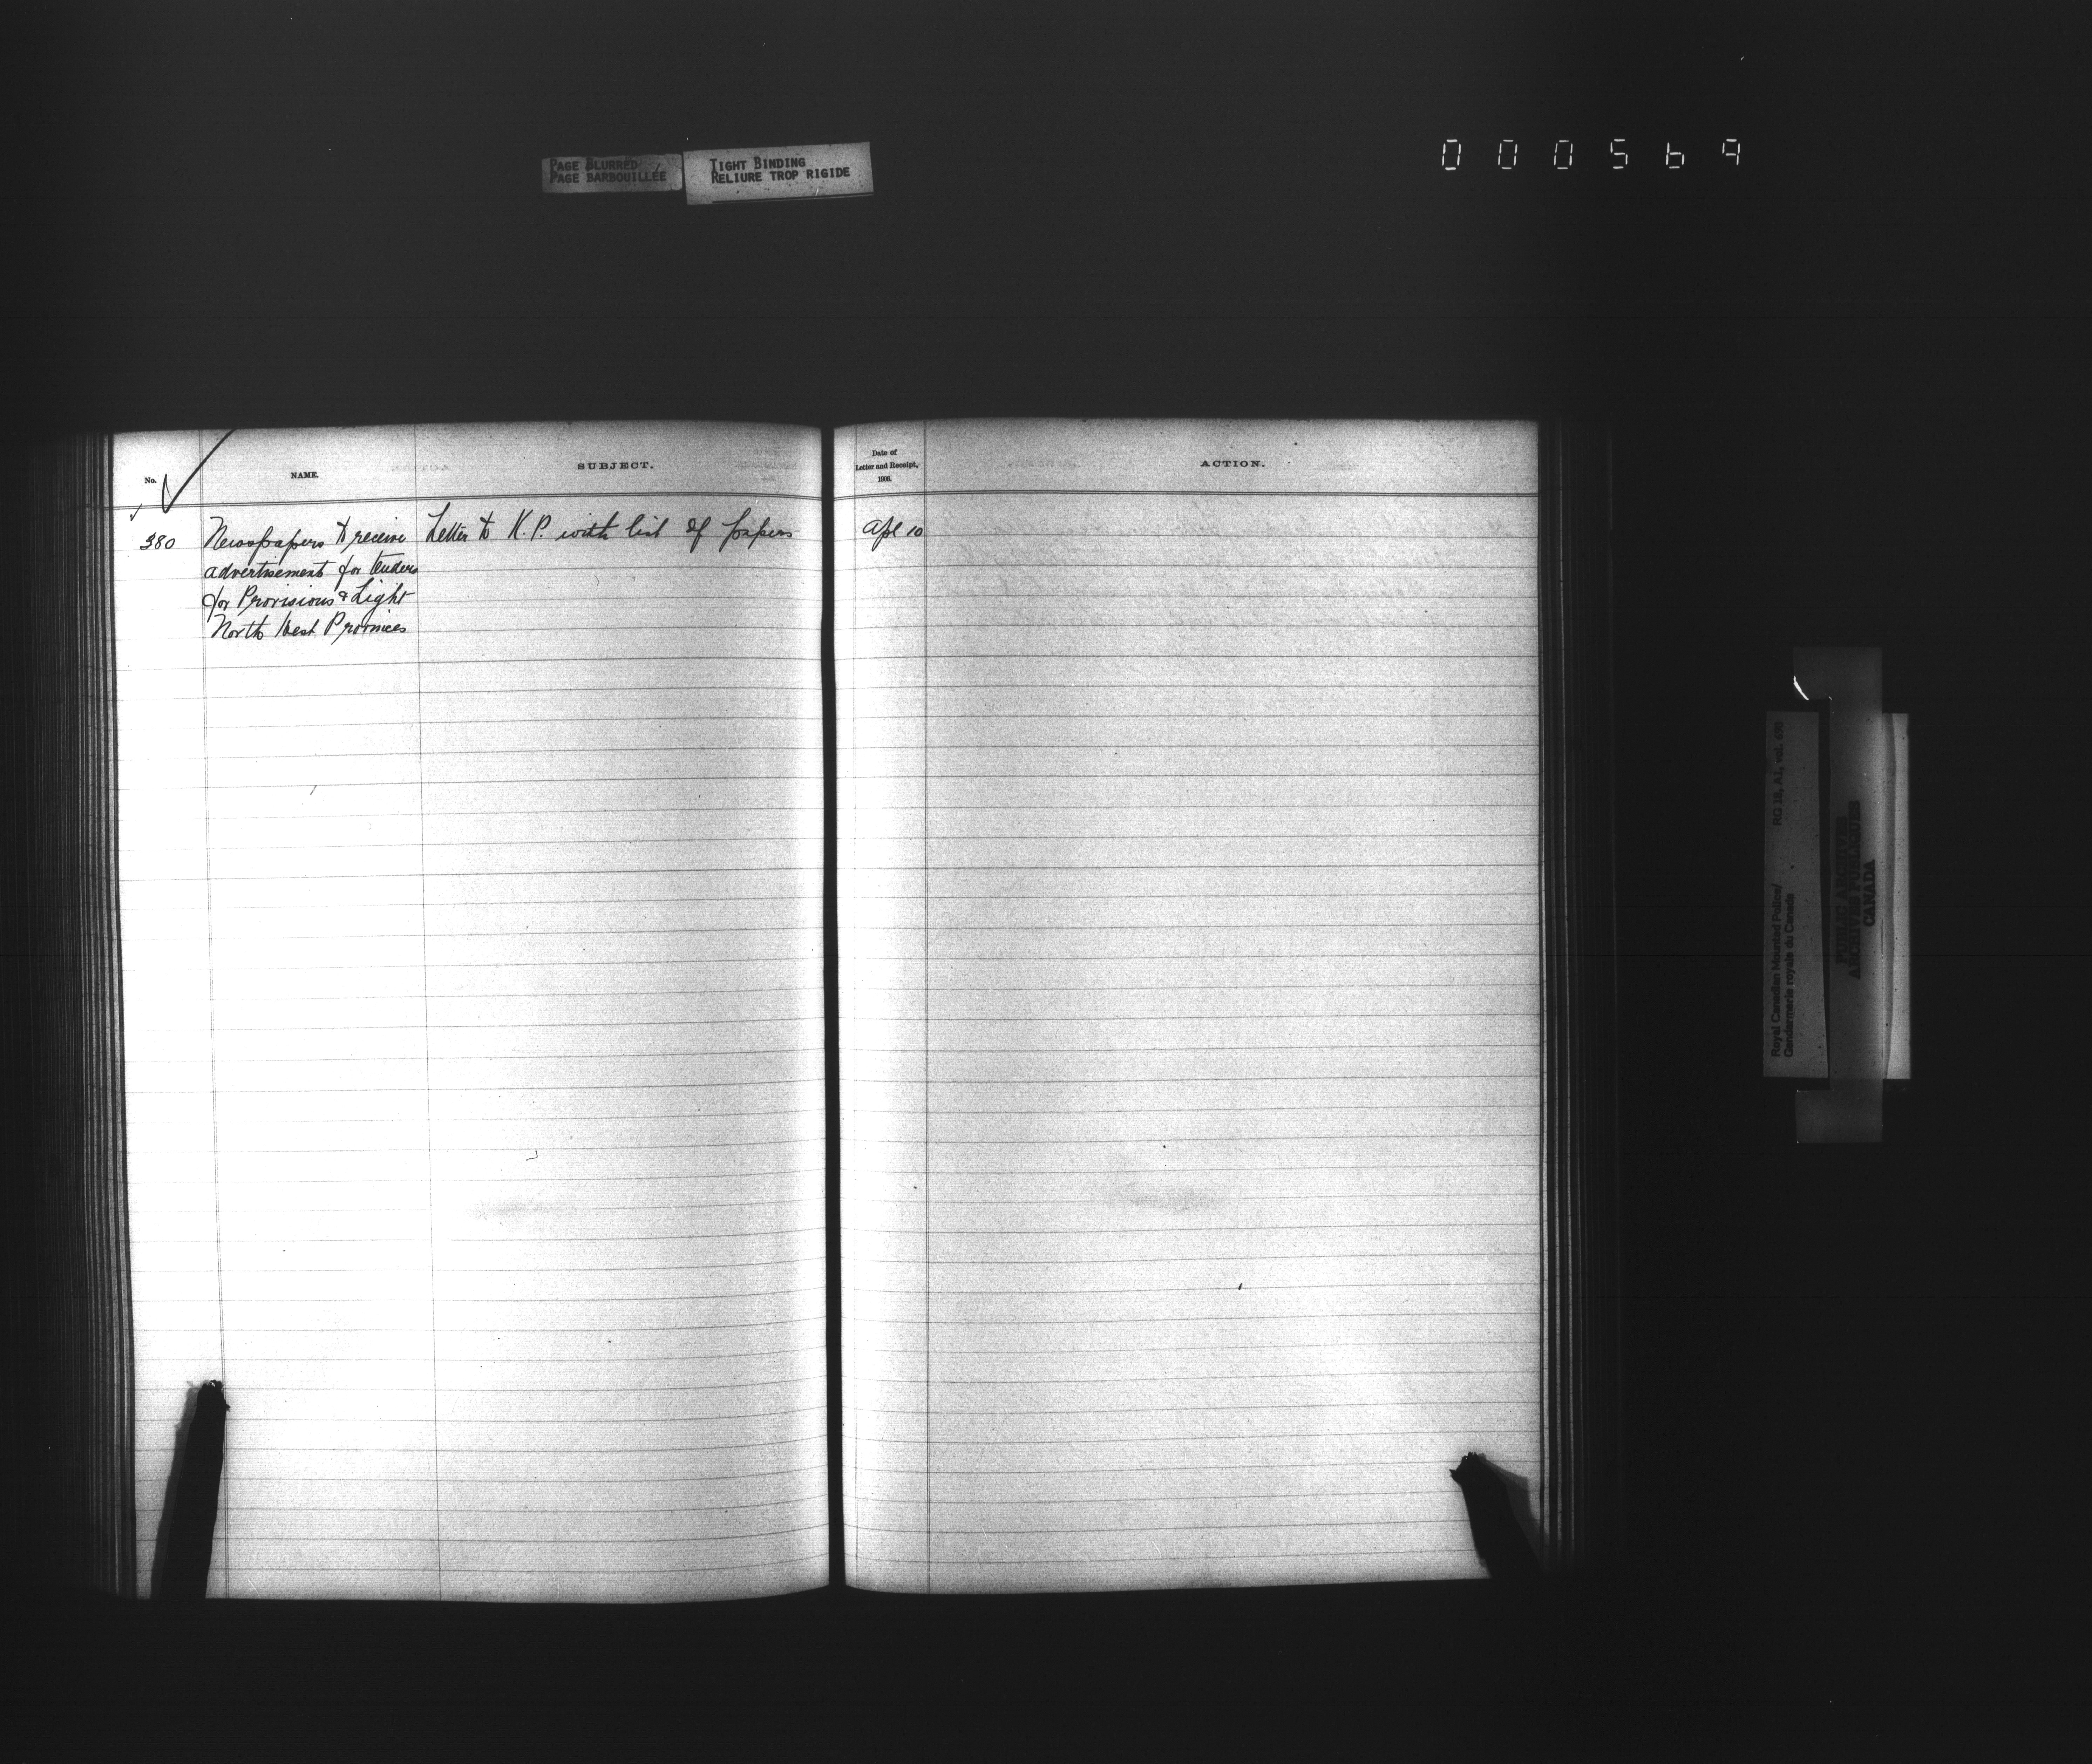 PAGE BLURRED
PAGE BARBOUILLÉE
TIGHT BINDING
RELIURE TROP RIGIDE
000569
No.
NAME.
SUBJECT.
Date of
Letter and Receipt,
1906.
ACTION.
380 Newspapers to receive Letter to K.P. with list of papers Apl 10
advertisement for tenders
for Provisions & Light
North West Provinces
Royal Canadian Mounted Police/ RG 18, A1, vol. 698
Gendarmerie royale du Canada
PUBLIC ARCHIVES
ARCHIVES PUBLIQUES
CANADA